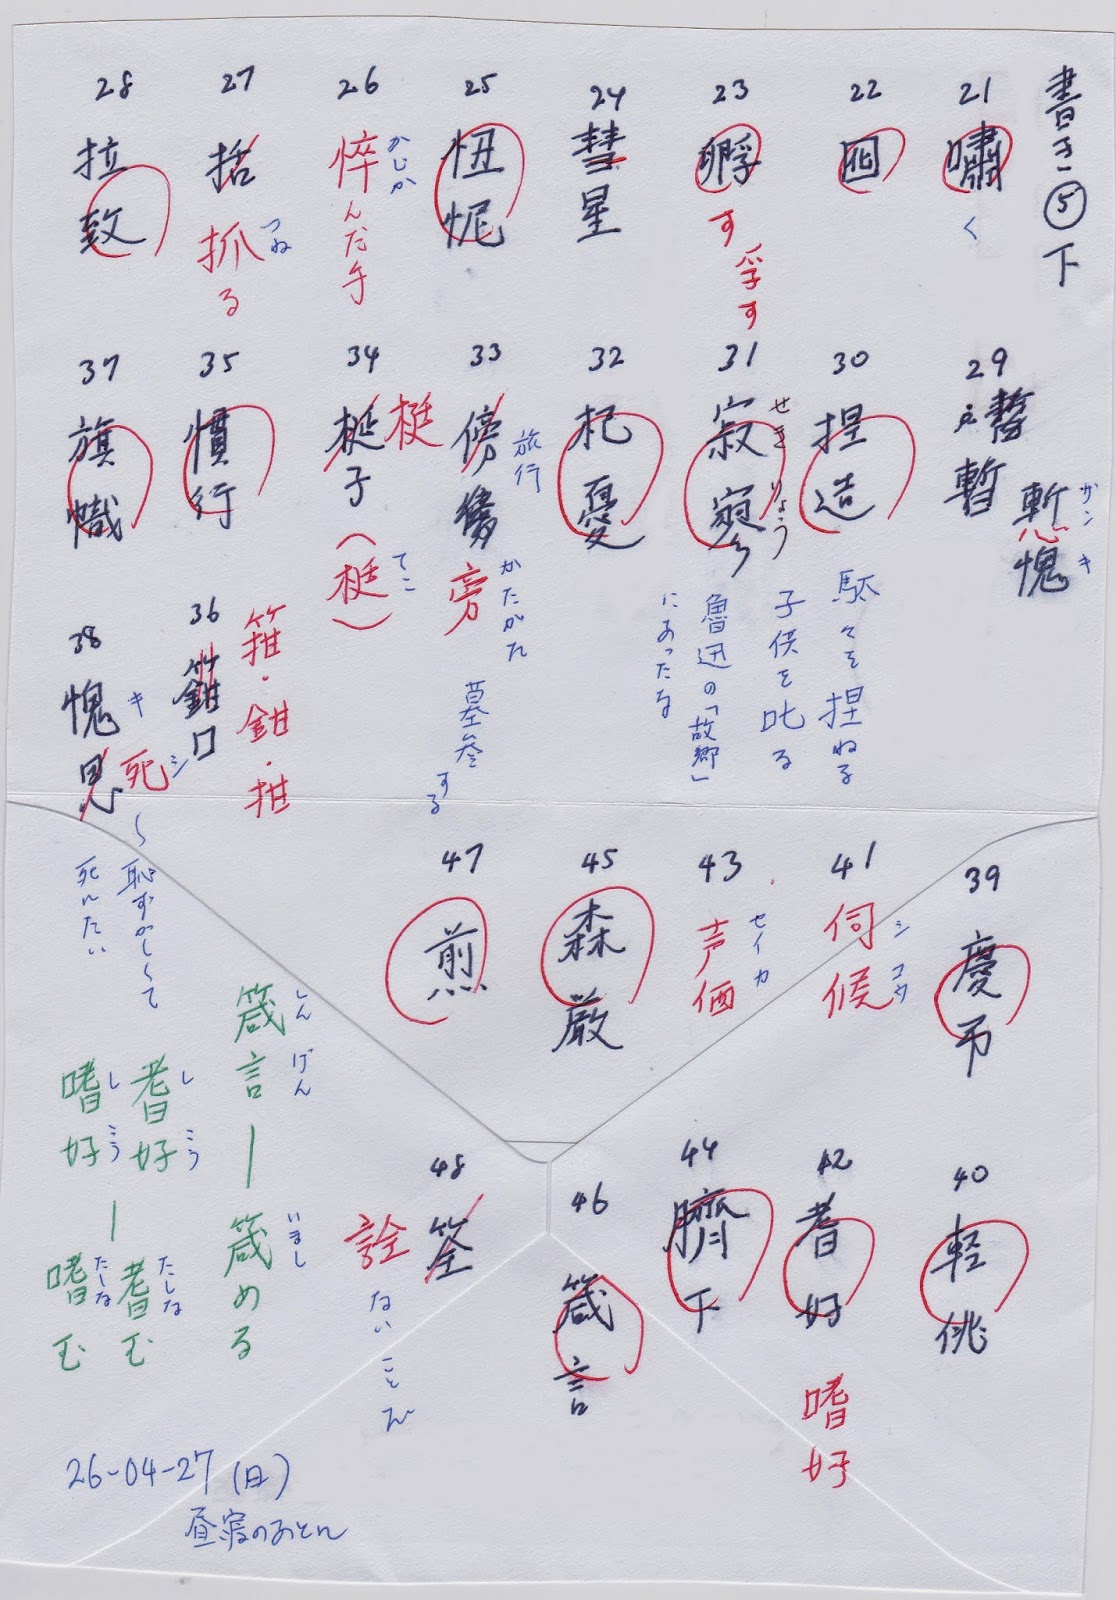 書き⑤下
21
嘯
く
22
囮
23
孵
す
孚す
24
彗星
25
忸怩
26
悴んだ手
かじか
27
括
抓る
つね
28
拉致
29
暫
慙愧
ザンキ
30
捏造
駄々を捏ねる
子供を叱る
31
寂寥
せきりょう
魯迅の「故郷」
にあったな
32
杞憂
33
傍
旁
旅行
かたがた
墓参
する
34
梃子
梃
(梃)
てこ
35
慣行
36
箝口
箝・鉗・拑
37
旗幟
38
愧思
キ
死
シ
～恥ずかしくて
死にたい
39
慶弔
40
軽佻
41
伺候
シコウ
42
耆好
嗜好
43
声価
セイカ
44
臍下
45
森厳
46
箴言
47
煎
48
筌
詮
ないことで
箴言ー箴める
しんげん
いまし
耆好ー耆む
しこう
たしな
嗜好ー嗜む
しこう
たしな
26-04-27(日)
昼寝のおとん